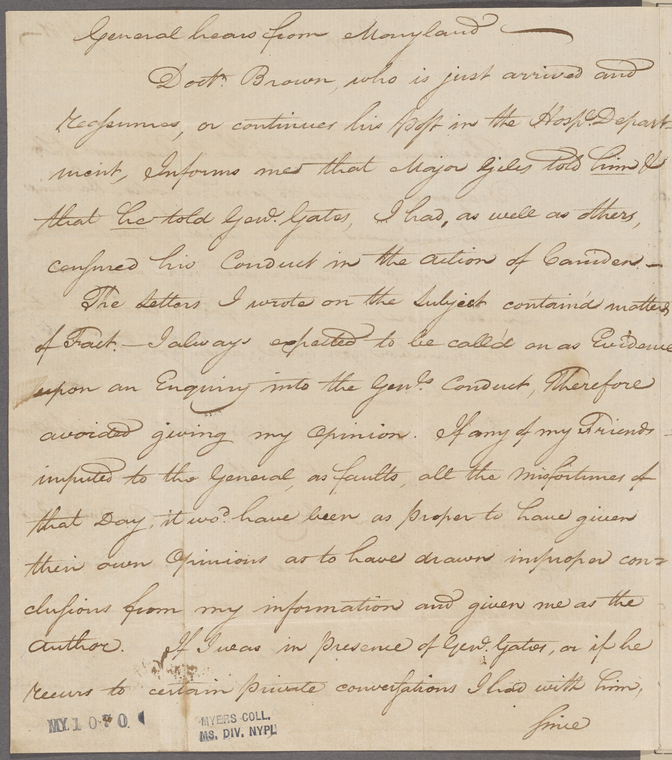 General hears from Maryland
Doctr. Brown, who is just arrived and
reassumes, or continues his Post in the Hospl. Depart
ment, Informs me that Major Giles told him &
that he told Genl. Gates, I had, as well as others,
censured his Conduct in the action of Camden. —
The Letters I wrote on the Subject contain'd matters
of Fact. — I always expected to be call'd on as Evidence
upon an Enquiry into the Genls. Conduct, Therefore
avoided giving my Opinion. If any of my Friends
imputed to the General, as faults, all the misfortunes of
that Day, it wod. have been as proper to have given
their own Opinions as to have drawn improper con=
clusions from my information and given me as the
author. If I was in presence of Genl. Gates, or if he
recurs to certain private conversations I had with him,
since
MY 10 70
MYERS COLL.
MS. DIV. NYPL